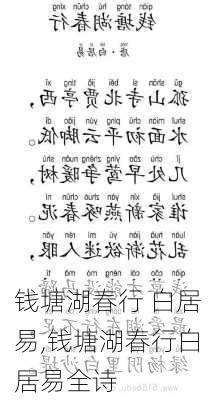 qián táng hú chūn xíng
钱塘湖春行
táng bái jū yì
唐·白居易
gū shān sì běi jiǎ tíng xī
孤山寺北贾亭西，
shuǐ miàn chū píng yún jiǎo dī
水面初平云脚低。
jǐ chù zǎo yīng zhēng nuǎn shù
几处早莺争暖树，
shuí jiā xīn yàn zhuó chūn ní
谁家新燕啄春泥。
luàn huā jiàn yù mí rén yǎn
乱花渐欲迷人眼，
钱塘湖春行 白居
易,钱塘湖春行白
居易全诗
绿杨阴里白沙堤